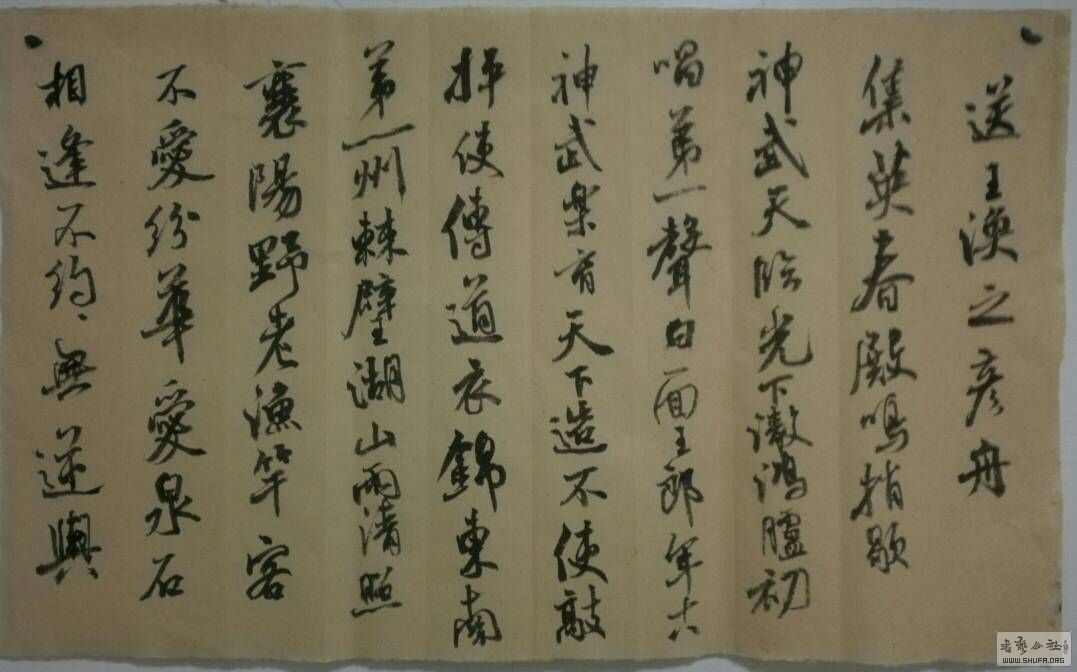 送王渙之彥舟
集英春殿鳴梢歇
神武天臨光下澈鴻臚初
唱第一聲白面王郎年十八
神武樂育天下造不使敲
抨使傳道衣錦東南
第一州棘璧湖山兩清照
襄陽野老漁竿客
不愛紛華愛泉石
相逢不約、無逆輿
书艺公社
WWW.SHUFA.ORG